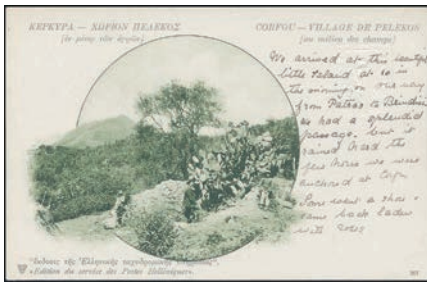 ΚΕΡΚΥΡΑ — ΧΩΡΙΟΝ ΠΕΛΕΚΟΣ
(ἐν μέσῳ τῶν ἀγρῶν)
CORFOU — VILLAGE DE PELEKOS
(au milieu des champs)
We arrived at this beautiful
little Island at 10 in
the morning, on our way
from Patras to Brindisi
we had a splendid
passage. but it
rained hard the
few hours we were
anchored at Corfu
went a shore
came back laden
with
Ἔκδοσις τῆς Ἑλληνικῆς ταχυδρομικῆς
«Edition du service des Postes Helléniques»